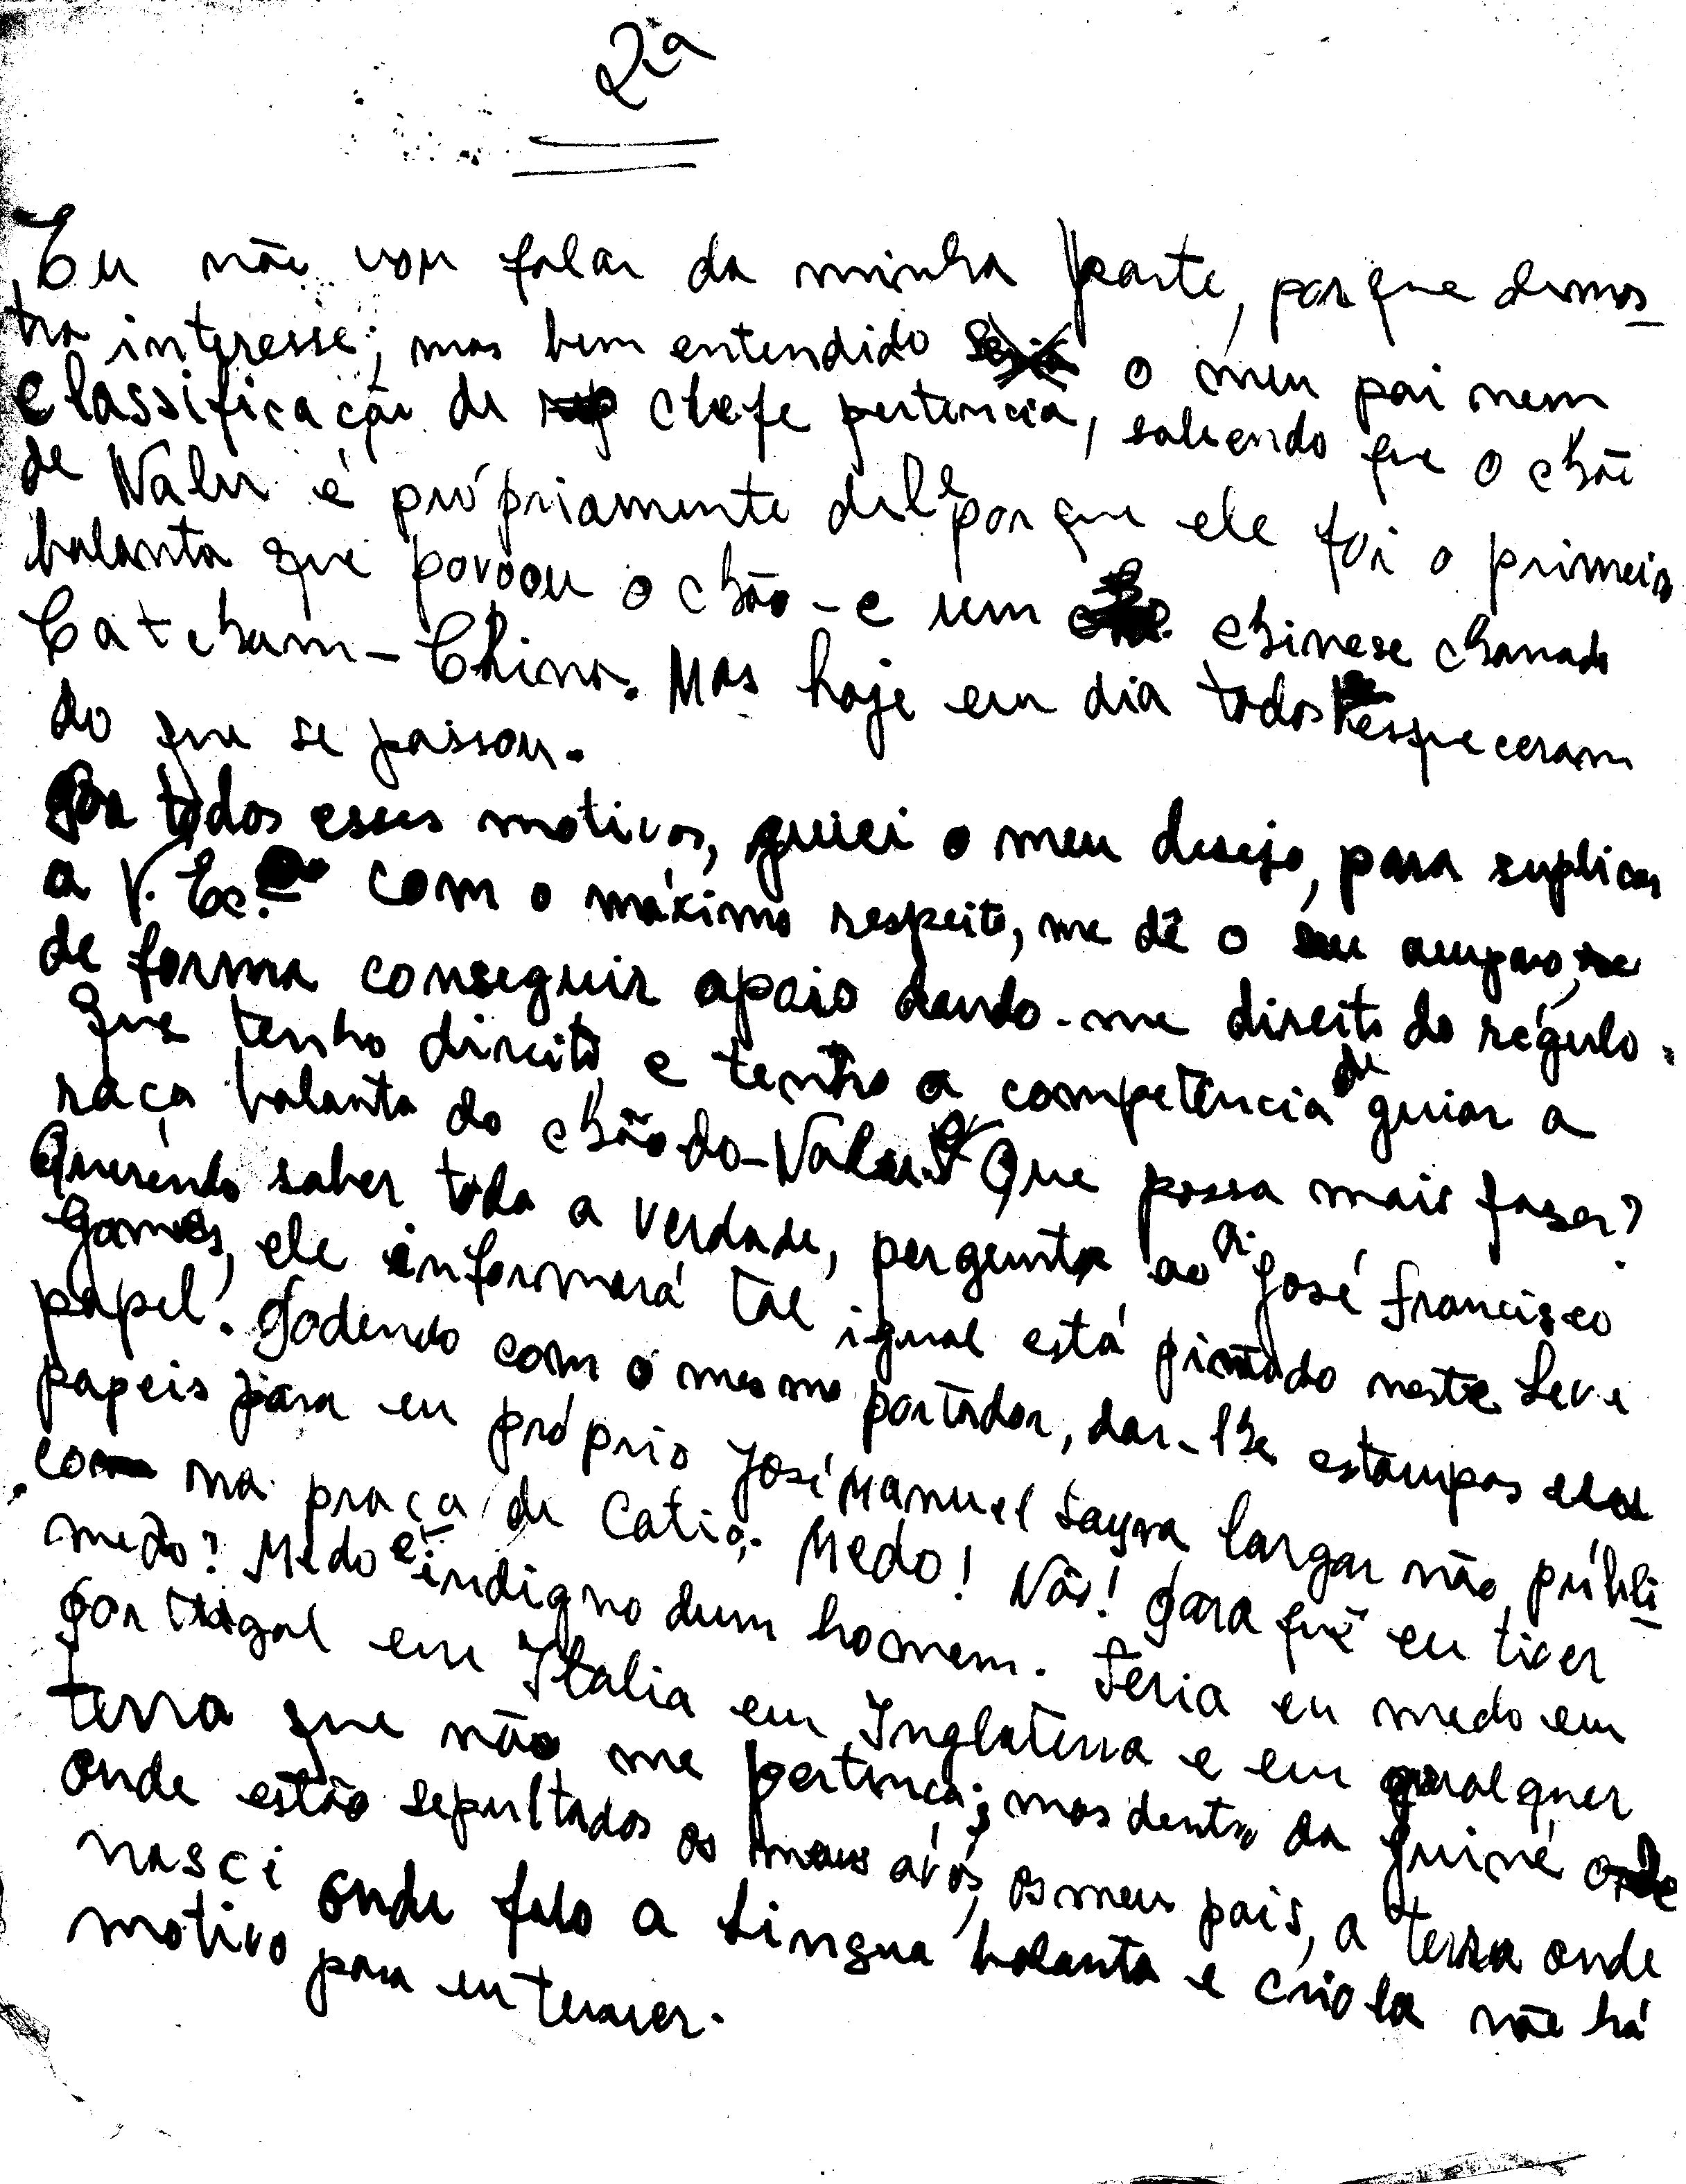 2ª
Eu não vou falar da minha parte, porque demos-
tra interesse; mas bem entendido o meu pai nem
classificação de chefe pertencia, sabendo que o chão
de Nalu é própriamente dele porque ele foi o primeiro
balanta que povoou o chão - e um chinese chamado
Catcham-Chino. Mas hoje em dia todos esqueceram
do que se passou.
Por todos esses motivos, guiei o meu desejo, para suplicar
a V. Ex.ª com o máximo respeito, me dê o seu amparo,
de forma conseguir apoio dando-me direito do régulo.
Que tenho direito e tenho a competência de guiar a
raça balanta do chão do-Nalu. Que possa mais faser?
Querendo saber toda a verdade, pergunta ao José Francisco
Gomes, ele informará tal igual está pintado neste Leve
papel. Podendo com o mesmo portador, dar-lhe estampas
papeis para eu próprio José Manuel Sayna largar não públi-
co na praça de Catió. Medo! Não! Para quê eu tiver
medo? Medo é indigno dum homem. Teria eu medo em
Portugal em Italia em Inglaterra e em qualquer
terra que não me pertença; mas dentro da Guiné onde
onde estão sepultados os meus avós, os meus pais, a terra onde
nasci onde falo a Lingua balanta e criola não há
motivo para eu temer.